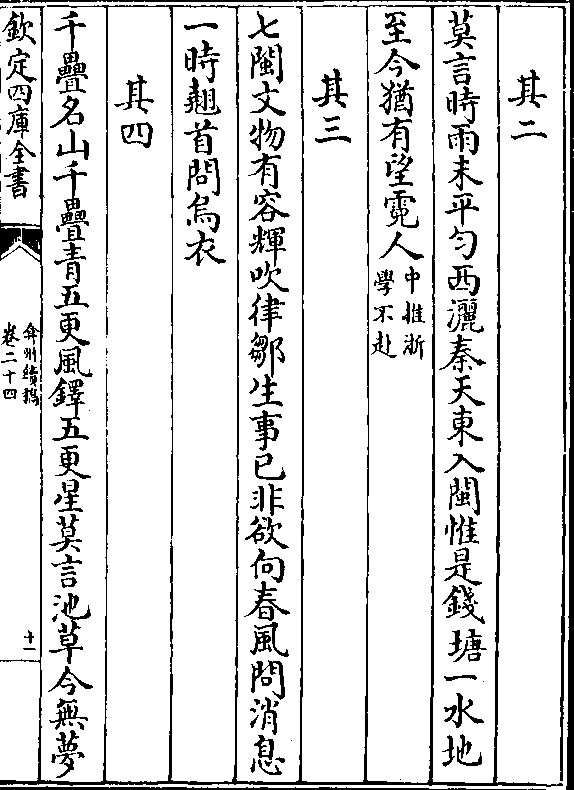 其二
莫言時雨未平勻西灑秦天東入閩惟是錢塘一水地
至今猶有望霓人中推浙學不赴
其三
七閩文物有容輝吹律鄒生事已非欲向春風問消息
一時翹首問烏衣
其四
千疊名山千疊青五更風鐸五更星莫言池草今無夢
欽定四庫全書
弇州續稿
卷二十四
十一